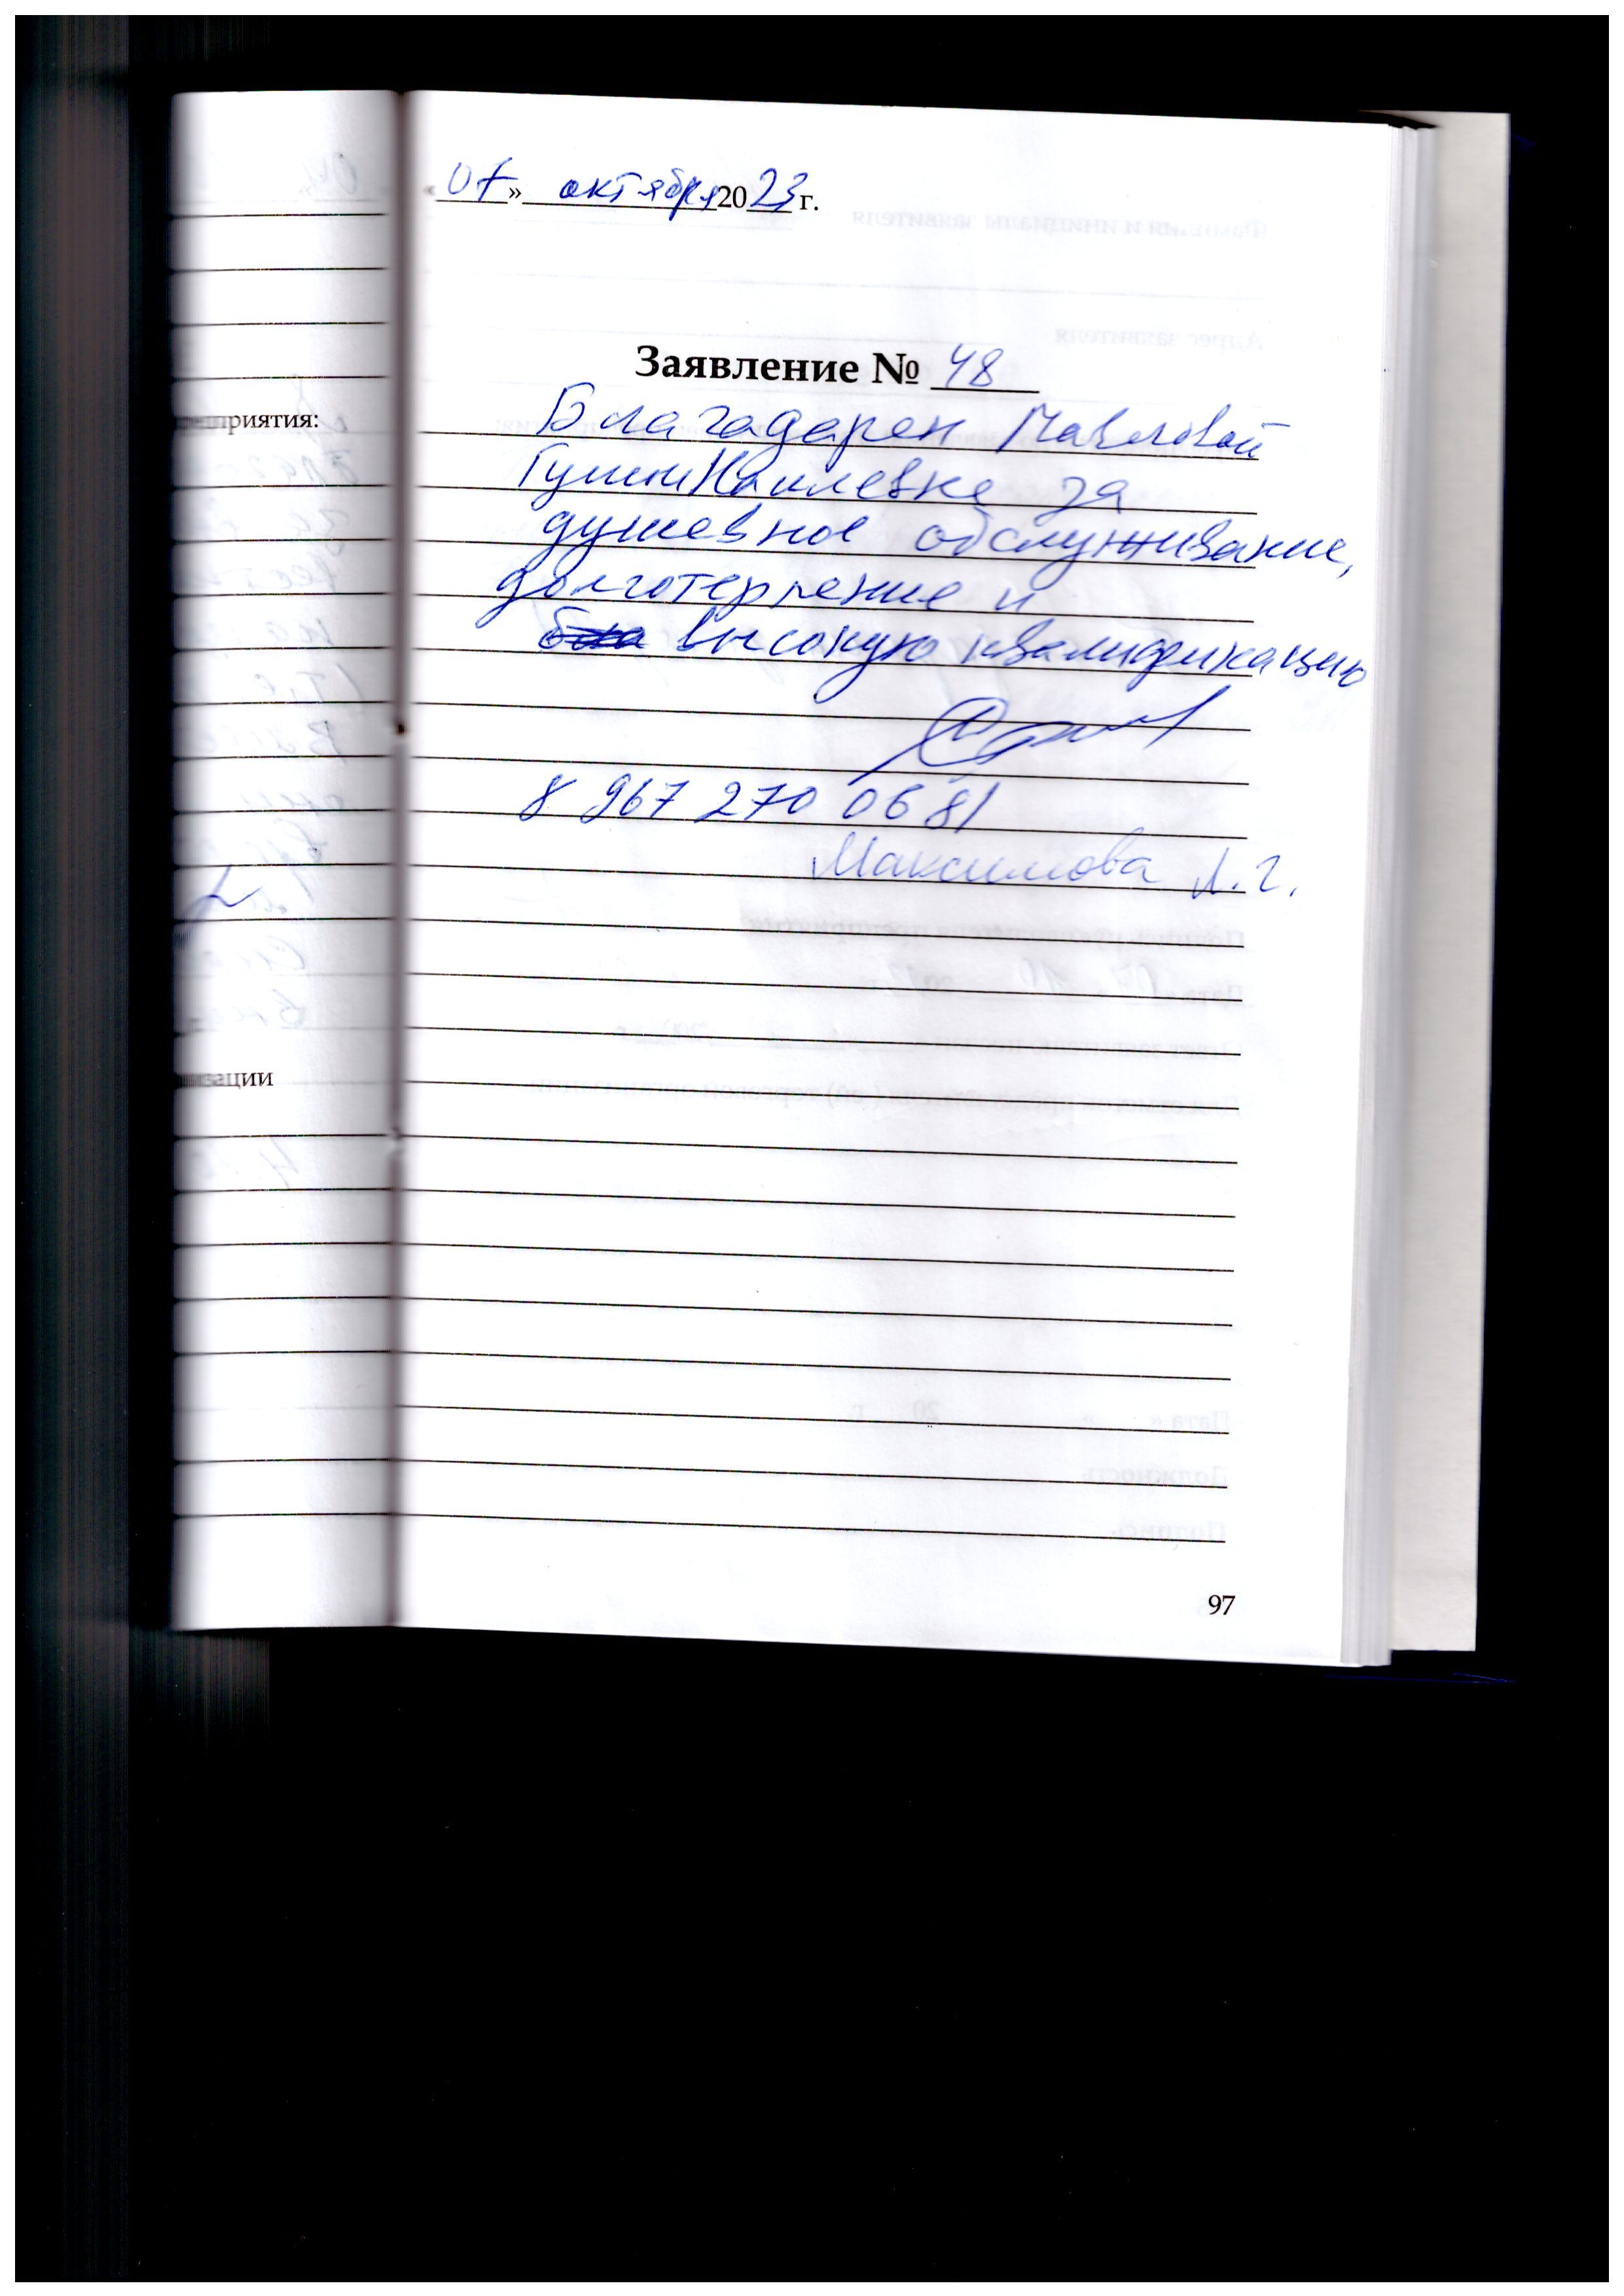 « 07 » октября 2023 г.
Заявление № 48
Благадарен Павловой
Наилевне за
душевное обслуживание,
долготерпение и
высокую квалификацию
8 967 270 06 81
Максимова Л. Г.
приятия:
изации
97